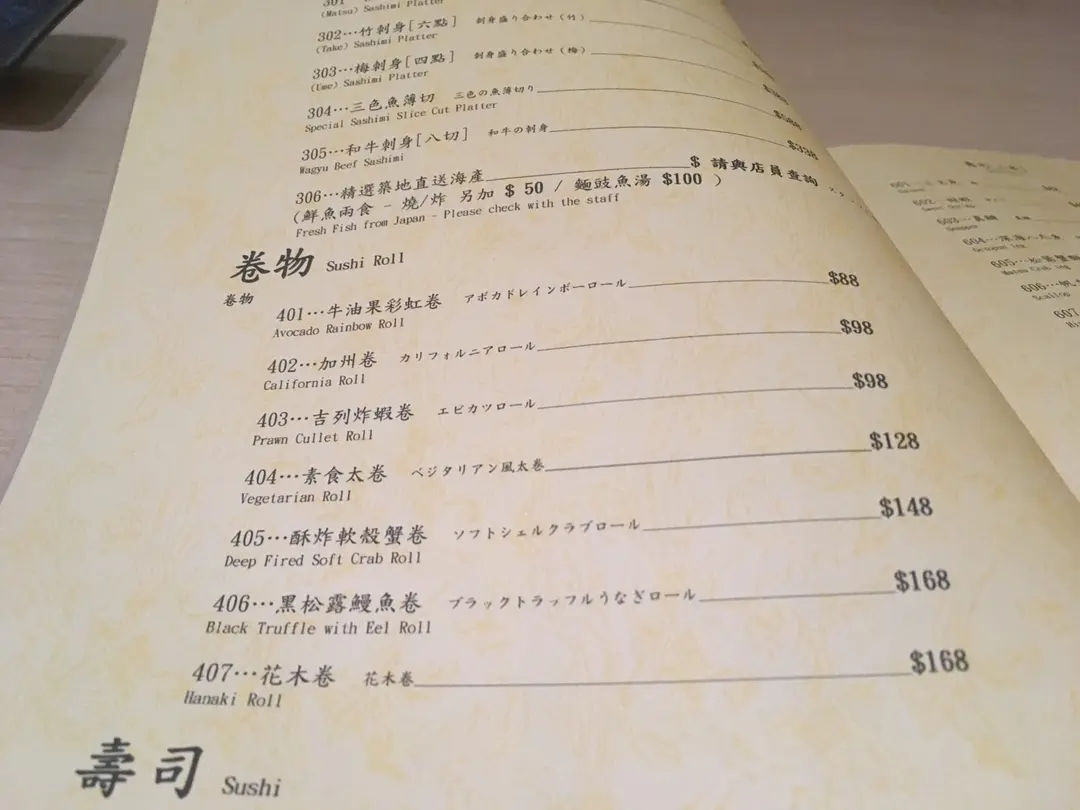 301
(Matsu) Sashimi Platter
302…竹刺身[六點] 刺身盛り合わせ(竹)
(Take) Sashimi Platter
303…梅刺身[四點] 刺身盛り合わせ(梅)
(Ume) Sashimi Platter
304…三色魚薄切 三色の魚薄切り
Special Sashimi Slice Cut Platter
305…和牛刺身[八切] 和牛の刺身 $338
Wagyu Beef Sashimi
306…精選築地直送海產 $ 請與店員查詢
(鮮魚兩食 - 燒/炸 另加 $ 50 / 麵豉魚湯 $100 )
Fresh Fish from Japan - Please check with the staff
卷物 Sushi Roll
卷物
401…牛油果彩虹卷 アボカドレインボーロール $88
Avocado Rainbow Roll
402…加州卷 カリフォルニアロール $98
California Roll
403…吉列炸蝦卷 エビカツロール $98
Prawn Cullet Roll
404…素食太卷 ベジタリアン風太巻 $128
Vegetarian Roll
405…酥炸軟殼蟹卷 ソフトシェルクラブロール $148
Deep Fired Soft Crab Roll
406…黑松露鰻魚卷 ブラックトラッフルうなぎロール $168
Black Truffle with Eel Roll
407…花木卷 花木巻 $168
Hanaki Roll
壽司 Sushi
601
602
603
Snapper
604
605
606
Scallop
607